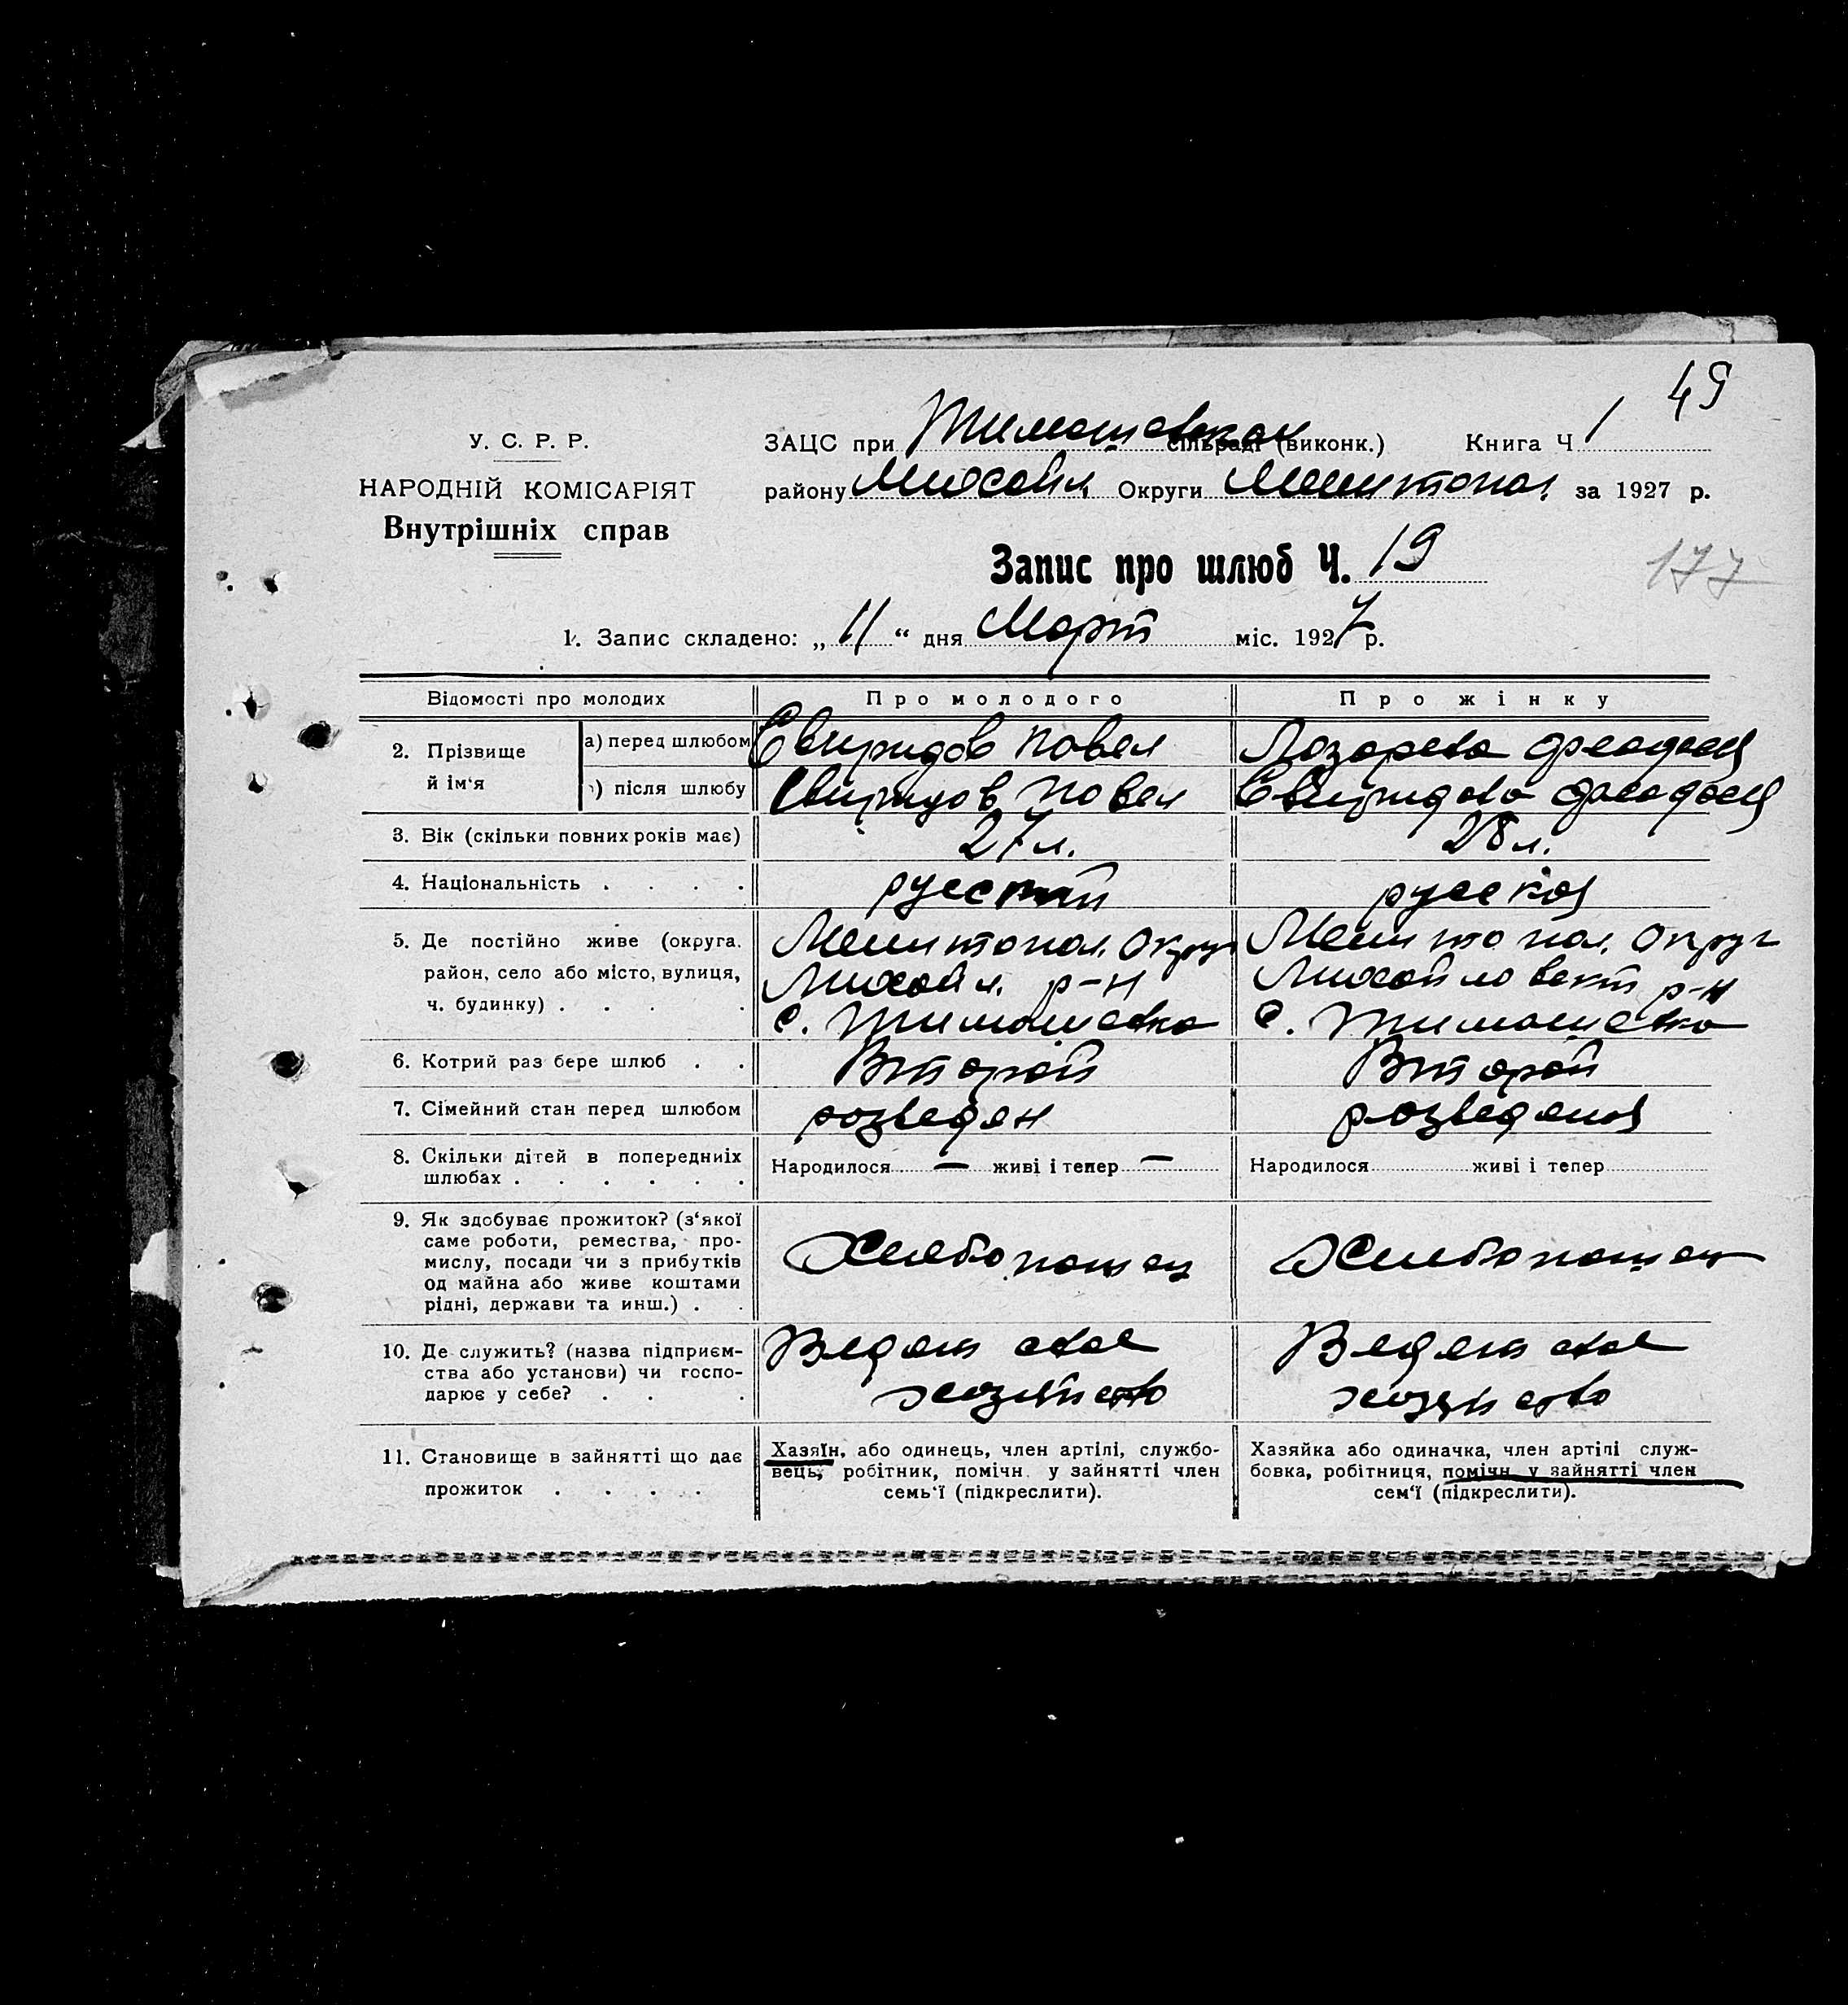 49
У. С. Р. Р.
НАРОДНІЙ КОМІСАРІЯТ
Внутрішніх справ
ЗАЦС при Тимошевкой сільраді (виконк.) Книга Ч 1
району Михайл. Округи Мелитопол. за 1927 р.
Запис про шлюб Ч. 19
177
1. Запис складено: „11“ дня Март міс. 1927 р.
Відомості про молодих
Про молодого
Про жінку
2. Прізвище й ім'я
а) перед шлюбом
Свиридов Павел
Лазарева
) після шлюбу
Свиридов Павел
Свиридова
3. Вік (скільки повних років має)
27 л.
28 л.
4. Національність . . . .
русский
русская
5. Де постійно живе (округа,
район, село або місто, вулиця,
ч. будинку) . . . .
Мелитопол. Округ
Михайл. р-н
с. Тимошевка
Мелитопол. Округ
Михайловский р-н
с. Тимошевка
6. Котрий раз бере шлюб . .
Второй
Второй
7. Сімейний стан перед шлюбом
розведен
розведеная
8. Скільки дітей в попередниіх
шлюбах . . . . . .
Народилося — живі і тепер —
Народилося живі і тепер
9. Як здобуває прожиток? (з'якої
саме роботи, ремества, про-
мислу, посади чи з прибутків
од майна або живе коштами
рідні, держави та инш.) . .
Хлебопашец
Хлебопашец
10. Де служить? (назва підприєм-
ства або установи) чи госпо-
дарює у себе? . . .
Ведет свое
хозяйство
Ведет свое
хозяйство
11. Становище в зайнятті що дає
прожиток . . . .
Хазяїн, або одинець, член артілі, службо-
вець, робітник, помічн. у зайнятті член
семь'ї (підкреслити).
Хазяйка або одиначка, член артілі служ-
бовка, робітниця, помічн. у зайнятті член
сем'ї (підкреслити).